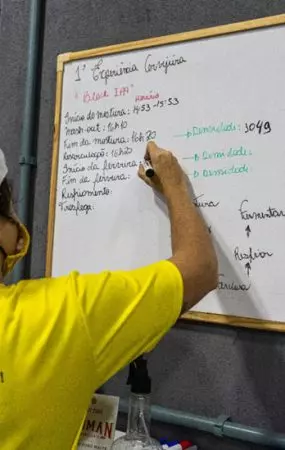 1ª Experiência Cervejeira
"Black IPA"
Horário
Início da mostura: 14:53 - 15:53
Mash-out: 16h10
Fim da mostura: 16h20
Recirculação: 16h20
Início da fervura:
Fim da fervura:
Resfriamento:
Trasfega:
→ Densidade: 1049
→ Densidade:
→ Densidade:
Fermentar
Resfriar
MAN